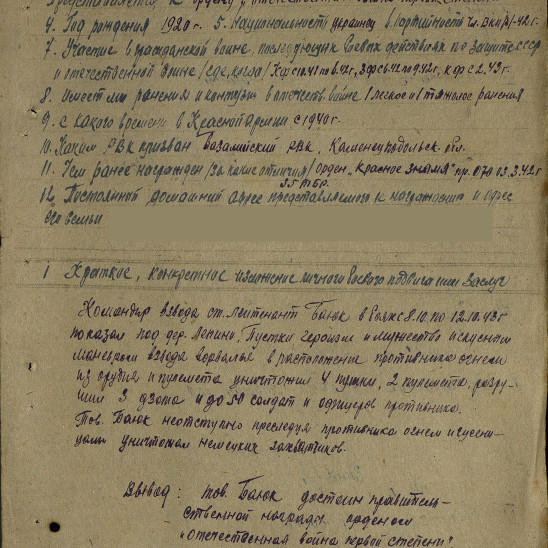 Представляется к ордену „Отечественная война первой степени“
4. Год рождения 1920 г. 5. Национальность украинец 6. Партийность чл. ВКП(б)-42г.
7. Участие в гражданской войне, последующих боевых действиях по защите СССР
и отечественной войне /где, когда/
8. Имеет ли ранения и контузии в отечеств. войне 1 легкое и 1 тяжелое ранения
9. С какого времени в Красной армии с 1940 г.
10. Каким РВК призван РВК, Каменец Подольск. обл.
11. Чем ранее награжден /за какие отличия/ орден „Красное знамя“ пр. 070 03.3.42г
55 ТБР.
12. Постоянный домашний адрес представляемого к награждению и адрес
его семьи
1 Краткое, конкретное изложение личного боевого подвига или заслуг
Командир взвода ст. лейтенант Баюк в боях с 8.10. по 12.10.43г
показал под дер. Ленино, Пустки героизм и мужество искусным
маневром взвода ворвался в расположение противника огнем
из орудия и пулемета уничтожил 4 пушки, 2 пулемета, разру-
шил 3 дзота и до 50 солдат и офицеров противника.
Тов. Баюк неотступно преследуя противника огнем и гусени-
цами уничтожал немецких захватчиков.
Вывод: тов. Баюк достоин правитель-
ственной награды орденом
„Отечественная война первой степени“